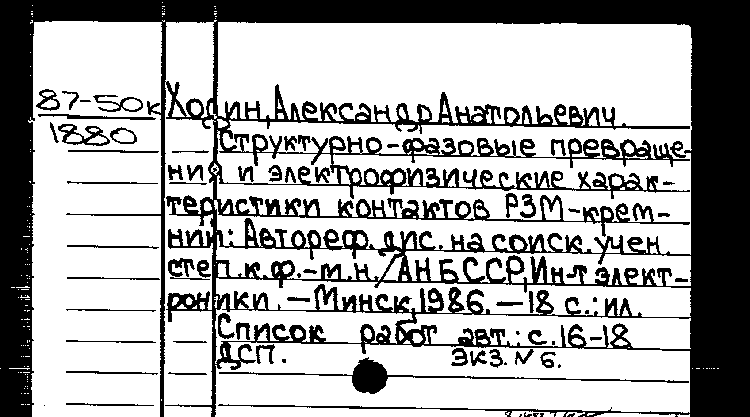 87-50к Ходин, Александр Анатольевич.
1880 Структурно-фазовые превраще-
ния и электрофизические харак-
теристики контактов РЗМ-крем-
ний: Автореф. дис. на соиск. учен.
степ. к.ф.-м.н./АН БССР, Ин-т элект-
роники. — Минск, 1986. — 18 с.: ил.
Список работ авт.: с. 16-18
ДСП. ЭКЗ. N 6.